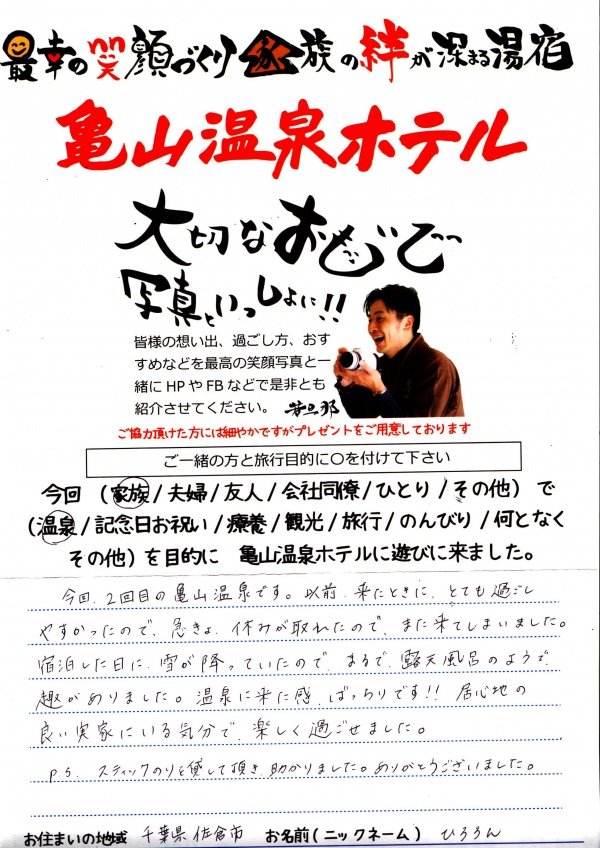 最幸の笑顔づくり 家族の絆が深まる湯宿
亀山温泉ホテル
大切なおもいで
写真といっしょに!!
皆様の想い出、過ごし方、おす
すめなどを最高の笑顔写真と一
緒に HP や FB などで是非とも
紹介させてください。 若旦那
ご協力頂けた方には細やかですがプレゼントをご用意しております
ご一緒の方と旅行目的に〇を付けて下さい
今回 (家族/夫婦/友人/会社同僚/ひとり/その他) で
(温泉/記念日お祝い/療養/観光/旅行/のんびり/何となく
その他) を目的に 亀山温泉ホテルに遊びに来ました。
今回、2回目の亀山温泉です。以前、来たときに、とても過ごし
やすかったので、急きょ、休みが取れたので、また来てしまいました。
宿泊した日に、雪が降っていたので、まるで、露天風呂のようで、
趣がありました。温泉に来た感、ばっちりです!! 居心地の
良い実家にいる気分で、楽しく過ごせました。
P.S. スティックのりを貸して頂き、助かりました。ありがとうございました。
お住まいの地域 千葉県佐倉市 お名前(ニックネーム) ひろろん